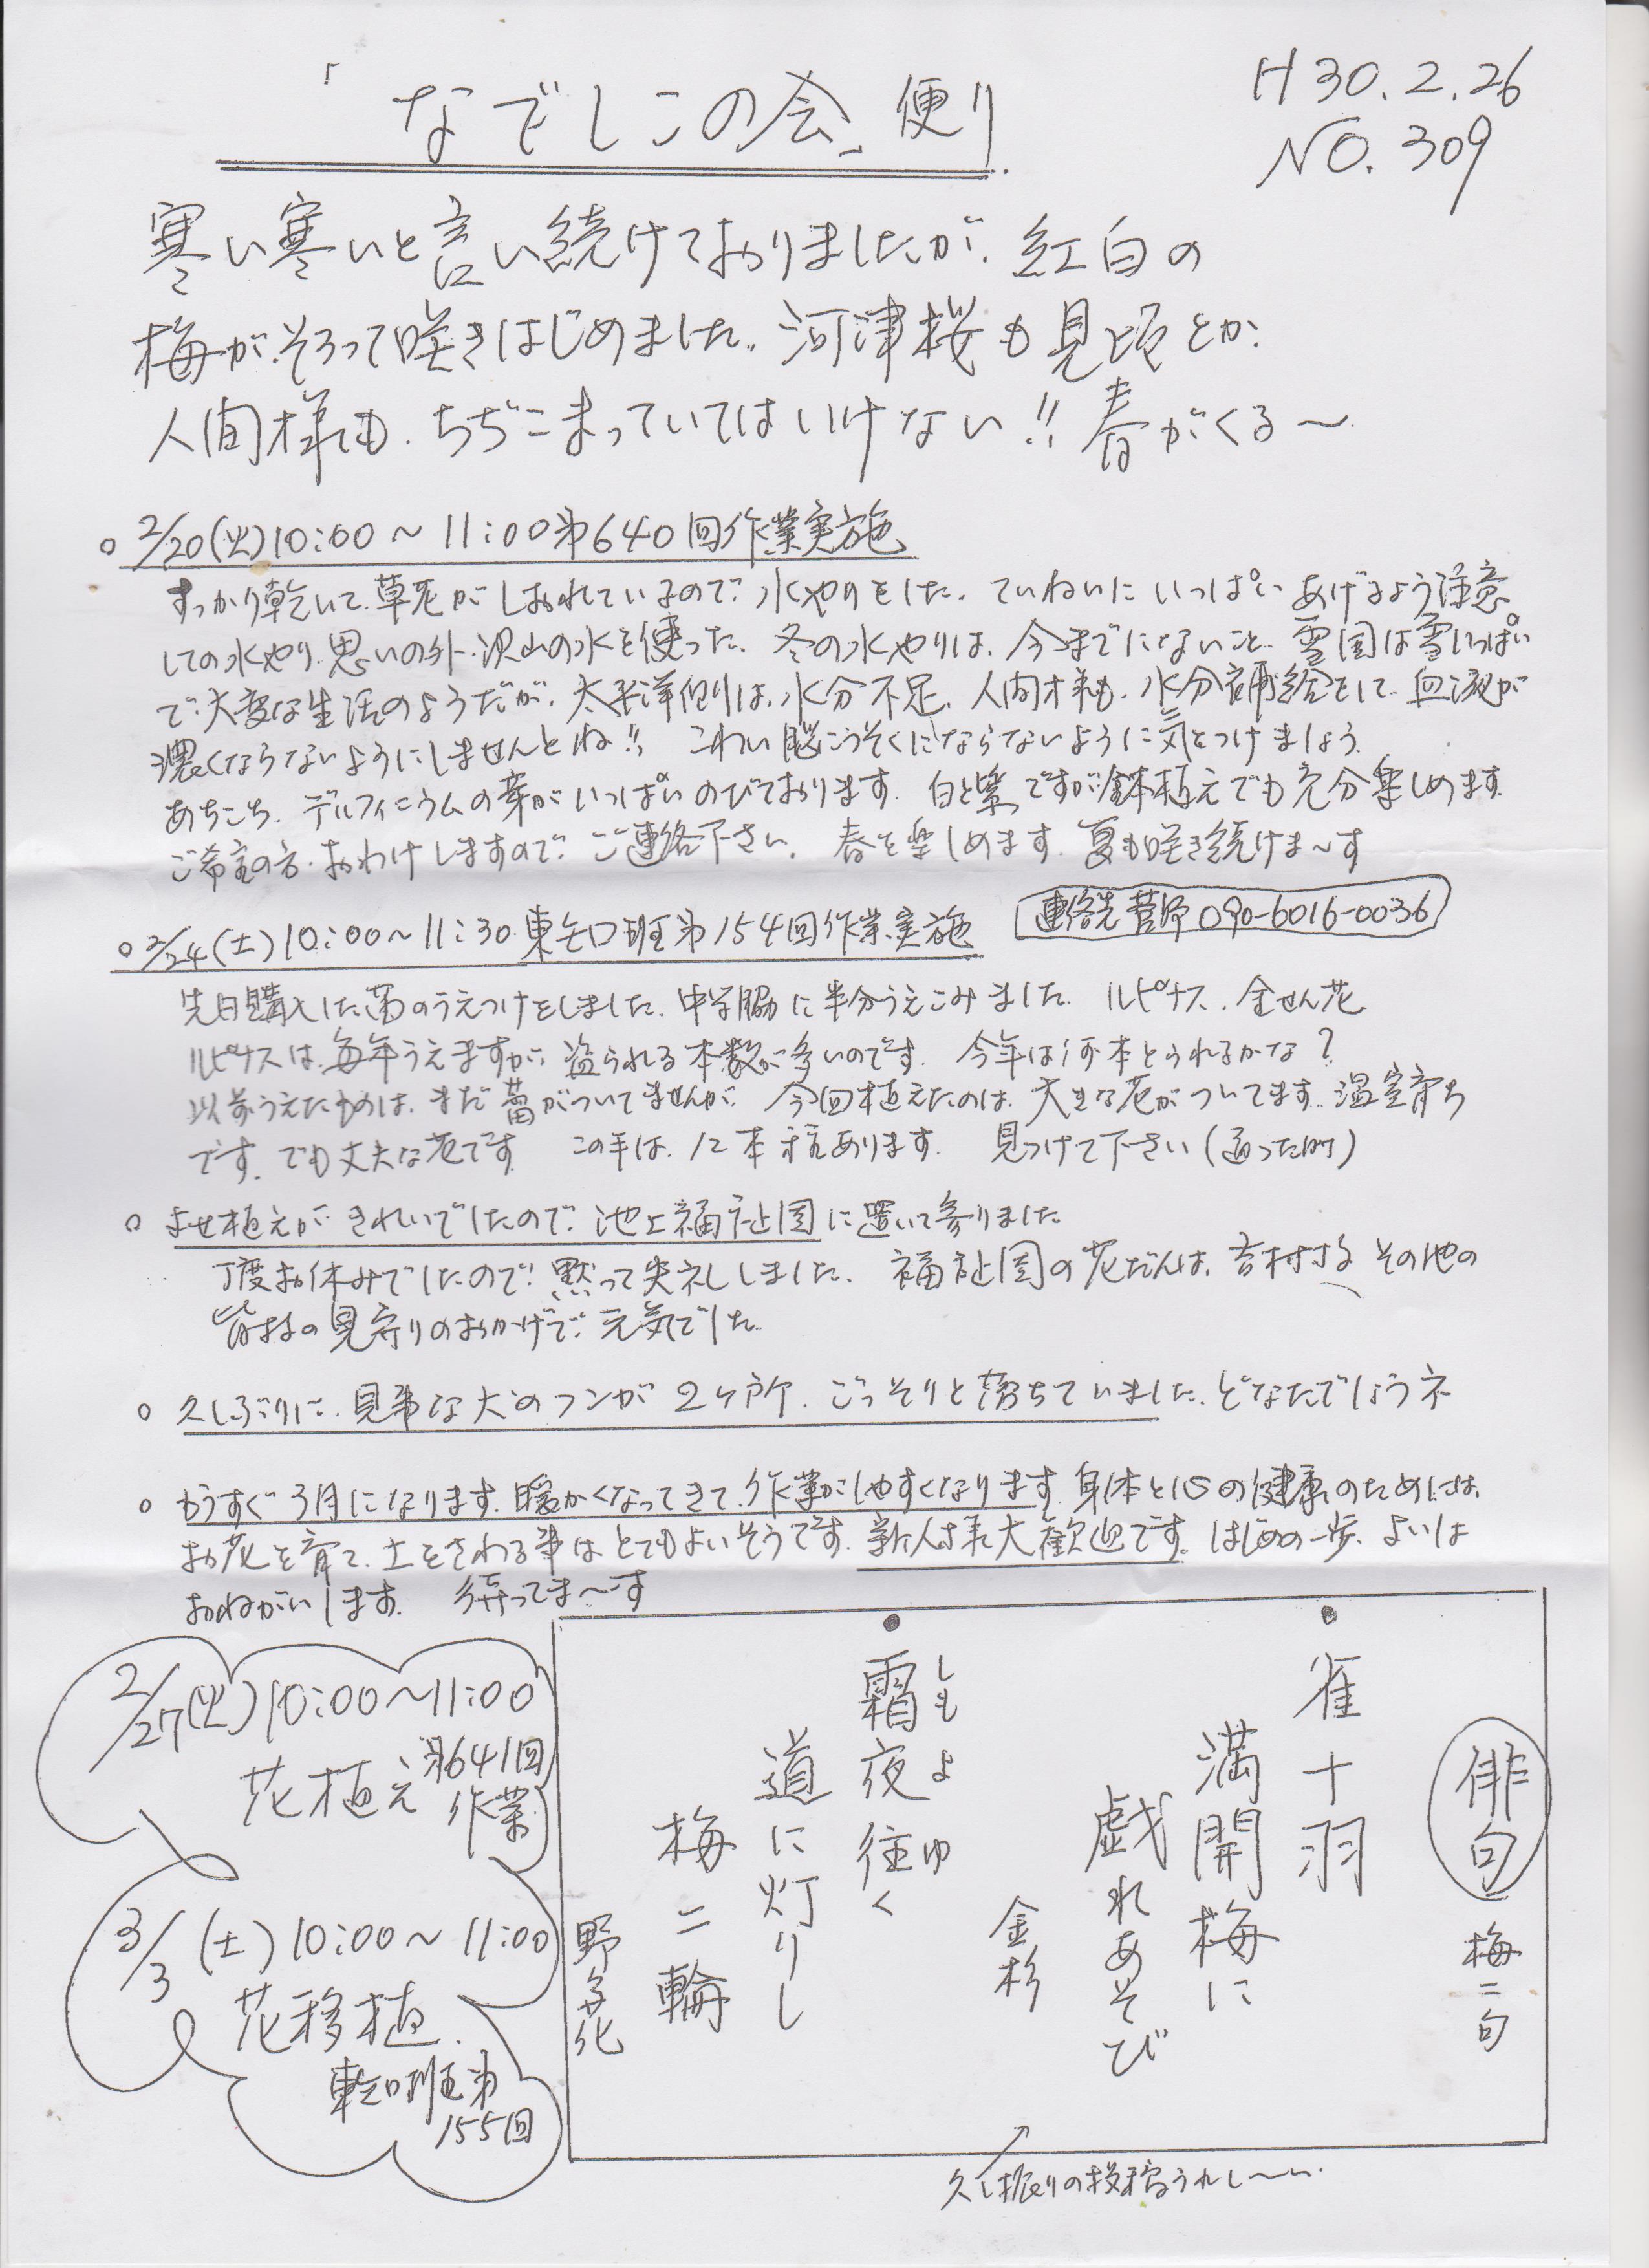 「なでしこの会」便り
H30.2.26
NO.309
寒い寒いと言い続けておりましたが、紅白の
梅がそろって咲きはじめました。河津桜も見頃とか、
人間様も、ちぢこまっていてはいけない!!春がくる〜
○2/20(火)10:00〜11:00第640回作業実施
すっかり乾いて、草花がしおれているので、水やりをした。ていねいにいっぱいあげるよう注意
しての水やり、思いの外、沢山の水を使った。冬の水やりは、今までにないこと。雪国は雪いっぱい
で大変な生活のようだが、太平洋側は、水分不足、人間様も、水分補給をして、血液が
濃くならないようにしませんとね!!こわい脳こうそくにならないように気をつけましょう。
あちこち、デルフィニウムの芽がいっぱいのびております。白と紫ですが鉢植えでも充分楽しめます。
ご希望の方、おわけしますので、ご連絡下さい。春を楽しめます。夏も咲き続けま〜す
連絡先菅野090-6016-0036
○2/24(土)10:00〜11:30東矢口班第154回作業実施
先日購入した苗のうえつけをしました。中学脇に半分うえこみました。ルピナス、金せん花
ルピナスは、毎年うえますが、盗られる本数が多いのです。今年は何本とられるかな?
以前うえたものは、まだ蕾がついてませんが、今回植えたのは、大きな花がついてます。温室育ち
です。でも丈夫な花です この手は、12本程あります。見つけて下さい(通った時)
○よせ植えがきれいでしたので、池上福祉園に置いて参りました
丁度お休みでしたので、黙って失礼しました。福祉園の花だんは、吉村様、その他の
皆様の見守りのおかげで、元気でした。
○久しぶりに、見事な犬のフンが2ヶ所、ごっそりと落ちていました、どなたでしょうネ
○もうすぐ3月になります。暖かくなってきて、作業がしやすくなります。身体と心の健康のためには、
お花を育て、土をさわる事はとてもよいそうです。新人様大歓迎です。はじめの一歩、よいは
おねがいします。待ってま〜す
2/27(火)10:00〜11:00
花植え第641回
作業
3/3(土)10:00〜11:00
花移植
東矢口班第
155回
俳句 梅二句
雀十羽
満開梅に
戯れあそび
金杉
霜夜往く
しもよ ゆ
道に灯りし
梅二輪
野々花
久し振りの投稿うれし〜い